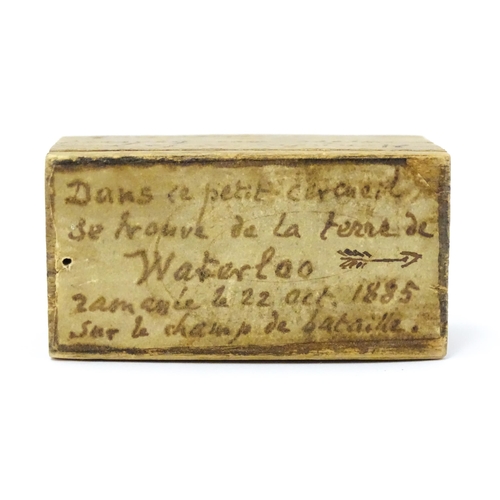 Dans ce petit cercueil
se trouve de la terre de
Waterloo
ramanée le 22 oct. 1885
sur le champ de bataille.